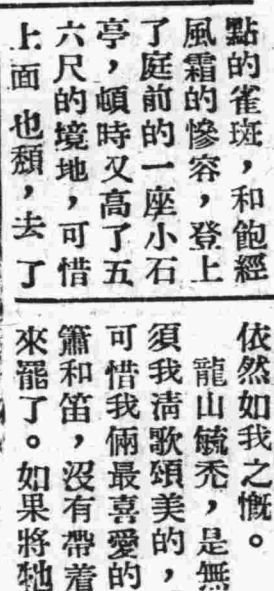 點的雀斑，和飽經
風霜的慘容，登上
了庭前的一座小石
亭，頓時又高了五
六尺的境地，可惜
上面也頹，去了
依然如我之慨。
龍山毓禿，是無
須我淸歌頌美的，
可惜我倆最喜愛的
簫和笛，沒有帶着
來罷了。如果將牠